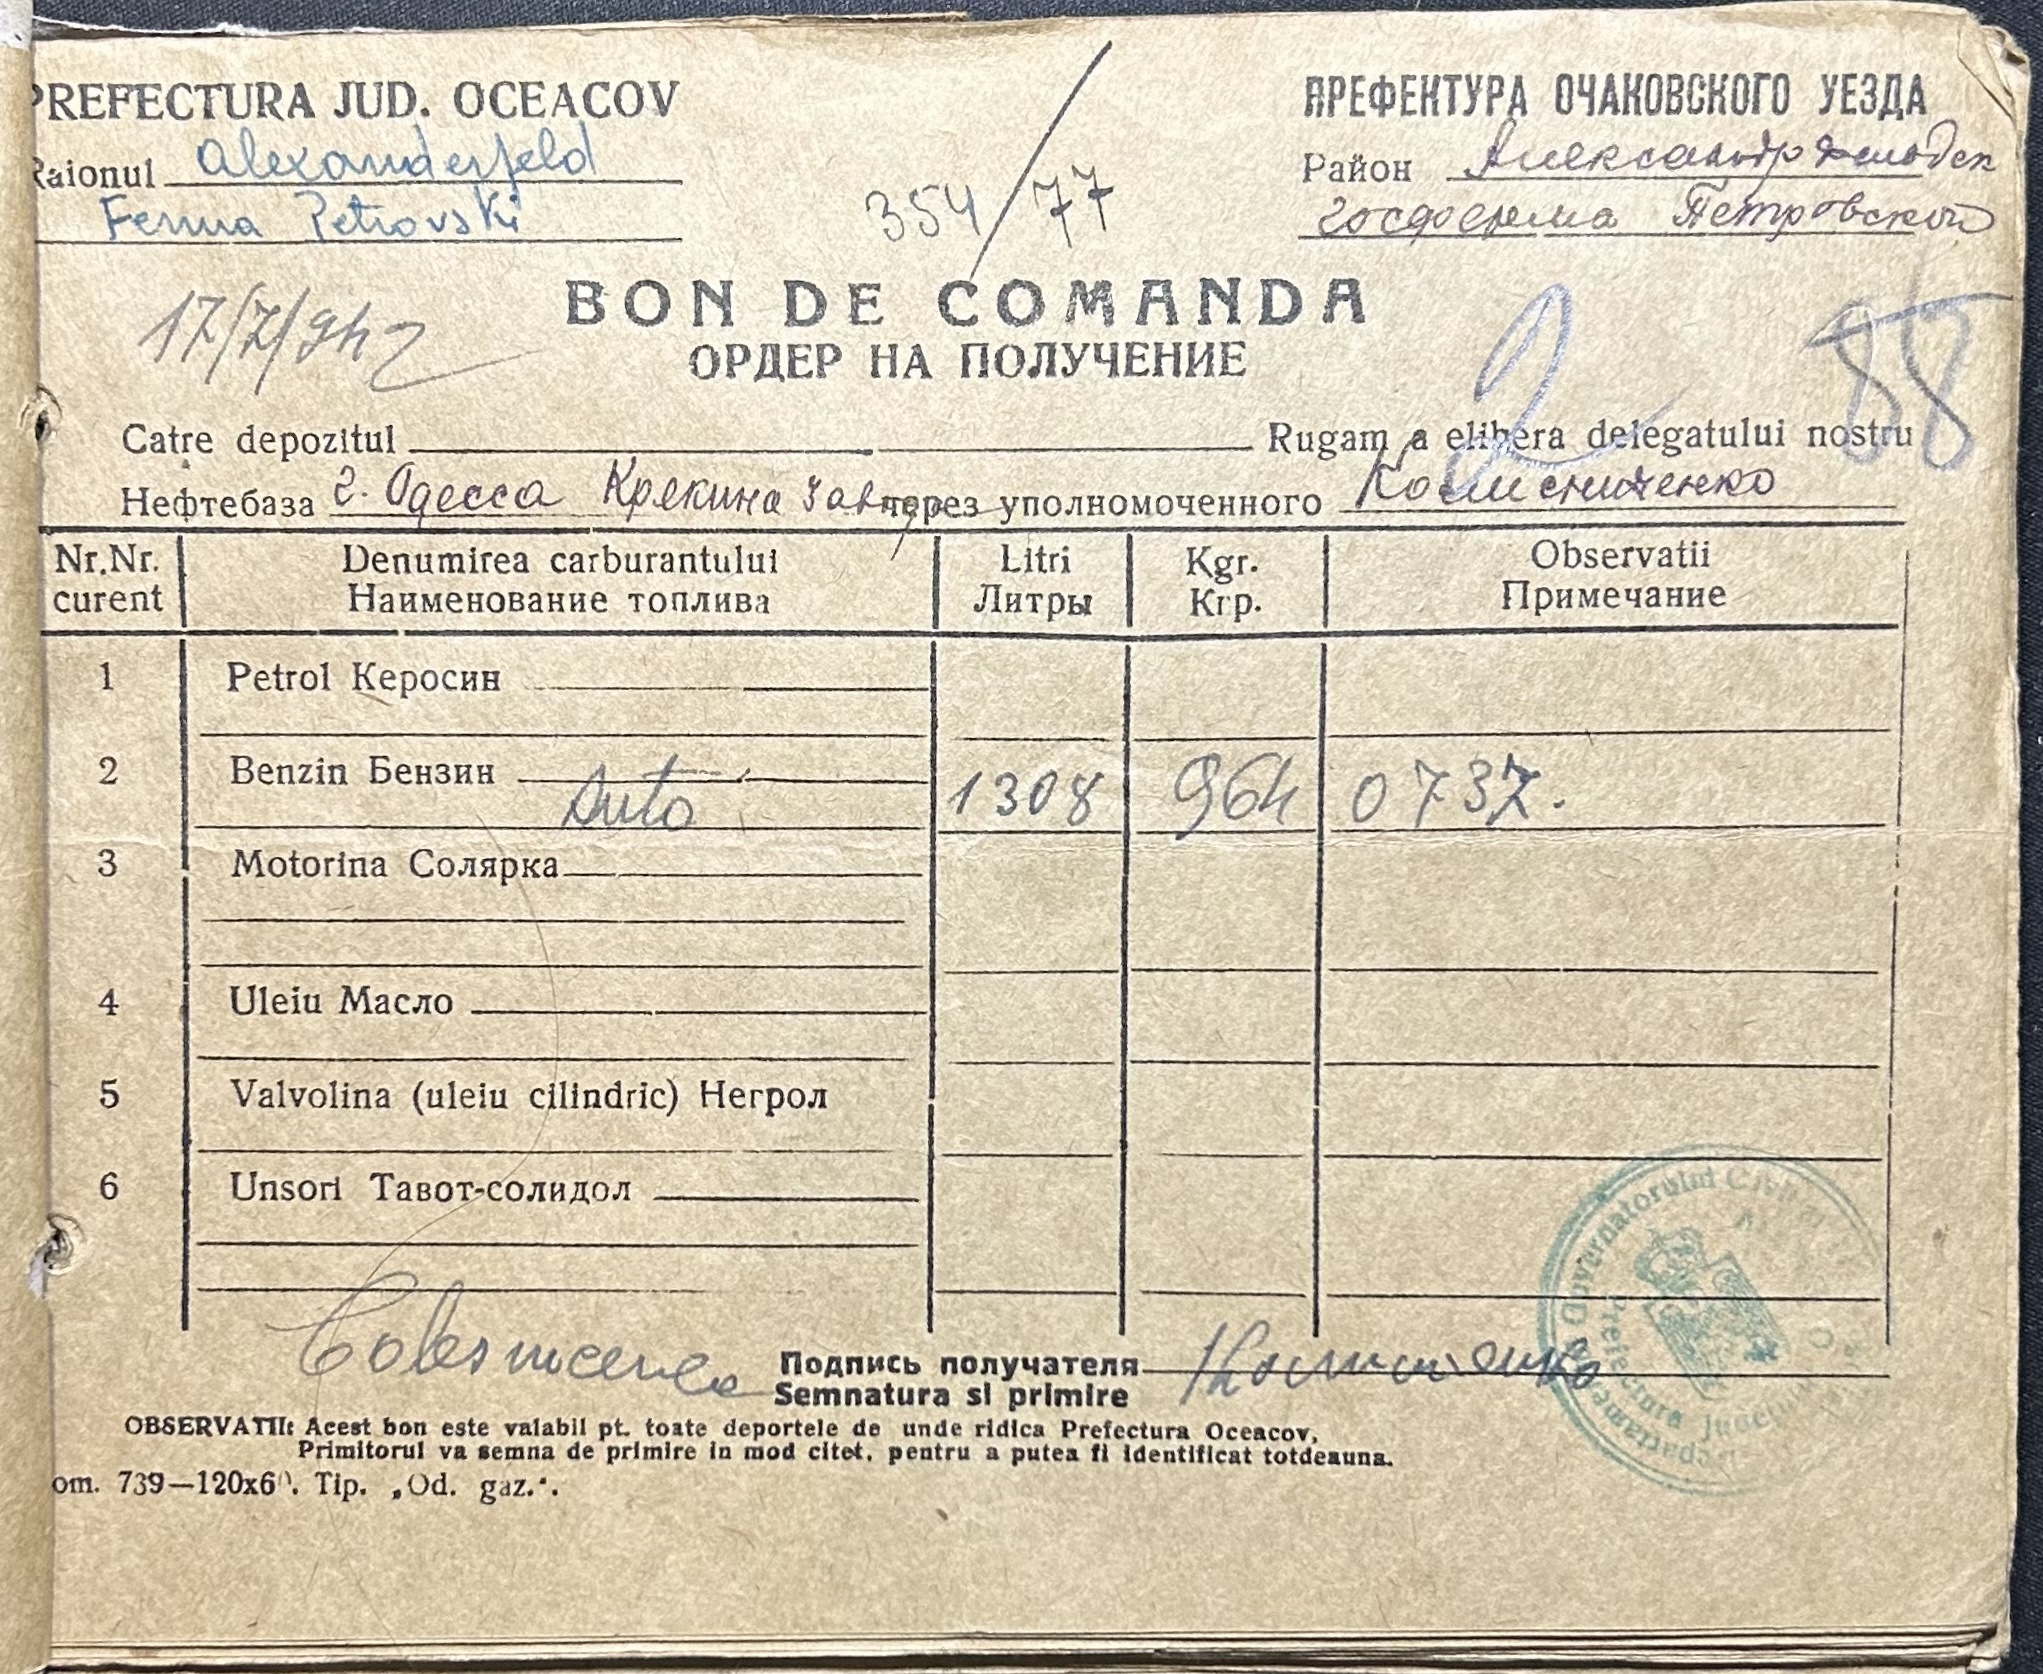 PREFECTURA JUD. OCEACOV
ПРЕФЕКТУРА ОЧАКОВСКОГО УЕЗДА
Raionul Alexanderfeld
Район Александрфельдск
Ferma Petrovski
госферма Петровской
354/77
17/7/942
BON DE COMANDA
ОРДЕР НА ПОЛУЧЕНИЕ
2
88
Catre depozitul Rugam a elibera delegatului nostru
Нефтебаза г. Одесса Крекина завод через уполномоченного
Nr.Nr. Denumirea carburantului Litri Kgr. Observatii
curent Наименование топлива Литры Кгр. Примечание
1 Petrol Керосин
2 Benzin Бензин
Auto 1308 964 0737.
3 Motorina Солярка
4 Uleiu Масло
5 Valvolina (uleiu cilindric) Негрол
6 Unsori Тавот-солидол
Подпись получателя
Semnatura si primire
OBSERVATII: Acest bon este valabil pt. toate deportele de unde ridica Prefectura Oceacov,
Primitorul va semna de primire in mod citet, pentru a putea fi identificat totdeauna.
om. 739—120x60. Tip. „Od. gaz.".
Guvernatorului Civil
Prefectura Judetului